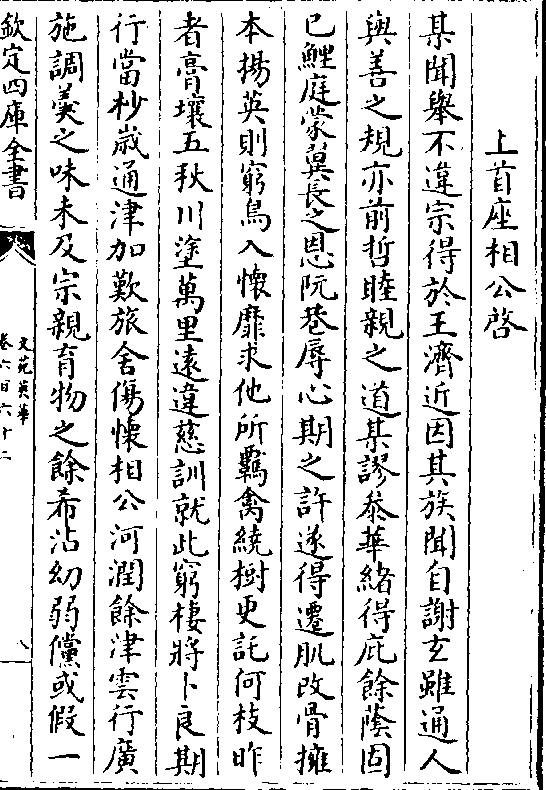 上首座相公啓
某聞舉不違宗得於王濟近因其族聞自謝玄雖通人
與善之規亦前哲睦親之道某謬忝華緒得庇餘蔭固
已鯉庭蒙翼長之恩阮巷辱心期之許遂得遷肌改骨擁
本揚英則窮鳥入懷靡求他所羈禽繞樹更託何枝昨
者膏壤五秋川塗萬里遠違慈訓就此窮棲將卜良期
行當杪歲通津加歎旅舍傷懷相公河潤餘津雲行廣
施調羹之味未及宗親育物之餘希沾幼弱儻或假一
欽定四庫全書
文苑英華
卷六百六十二
八